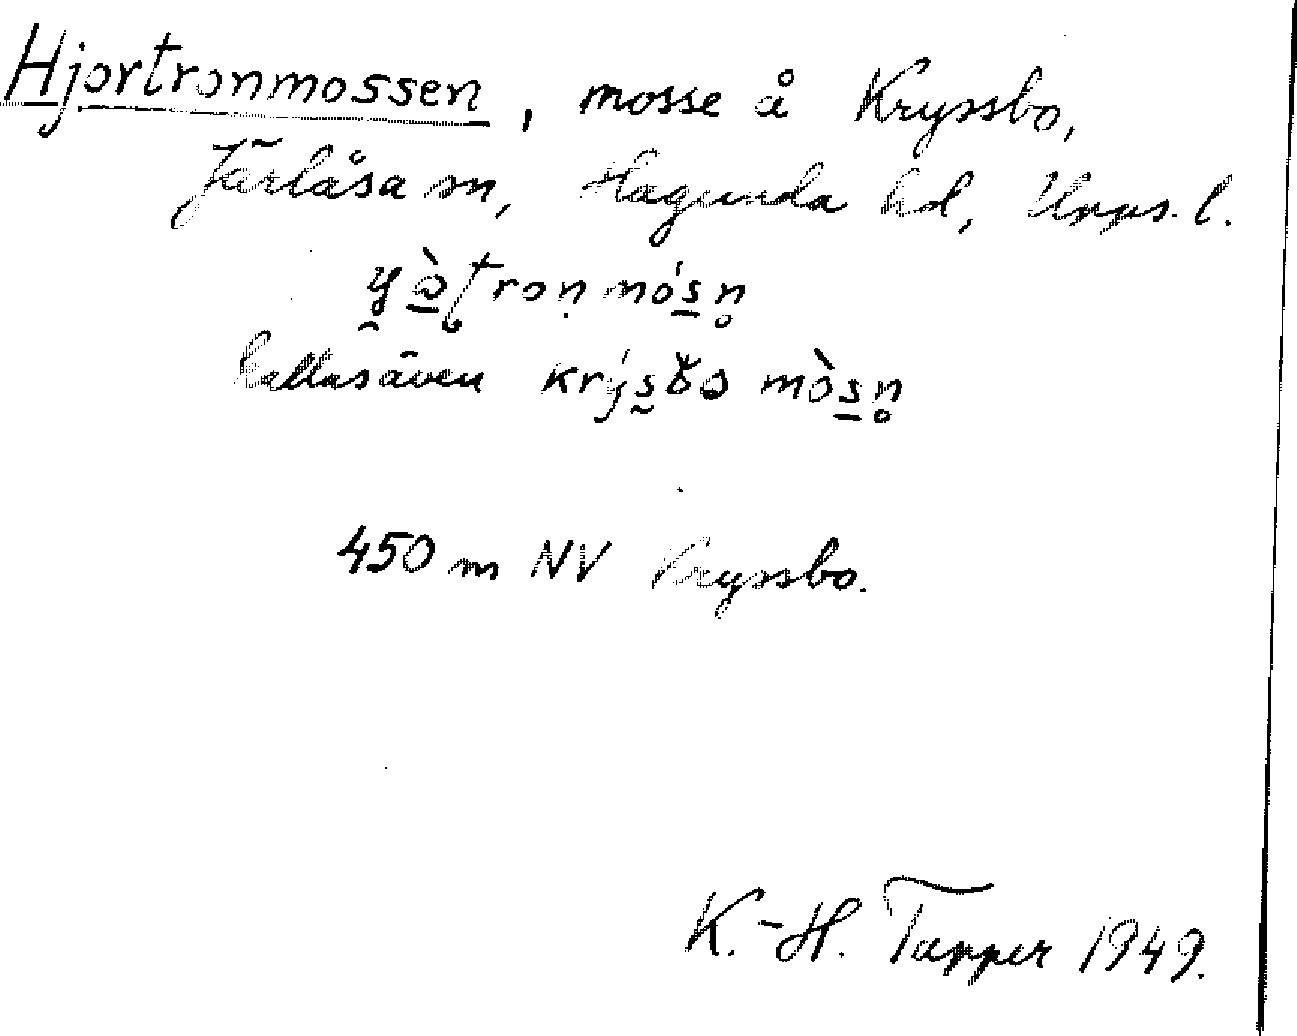 Hjortronmossen, mosse å Kryssbo,
Järlåsa sn, Hagunda hd, Upps. l.
kallas även
450 m NV Kryssbo.
K.-H. Tapper 1949.